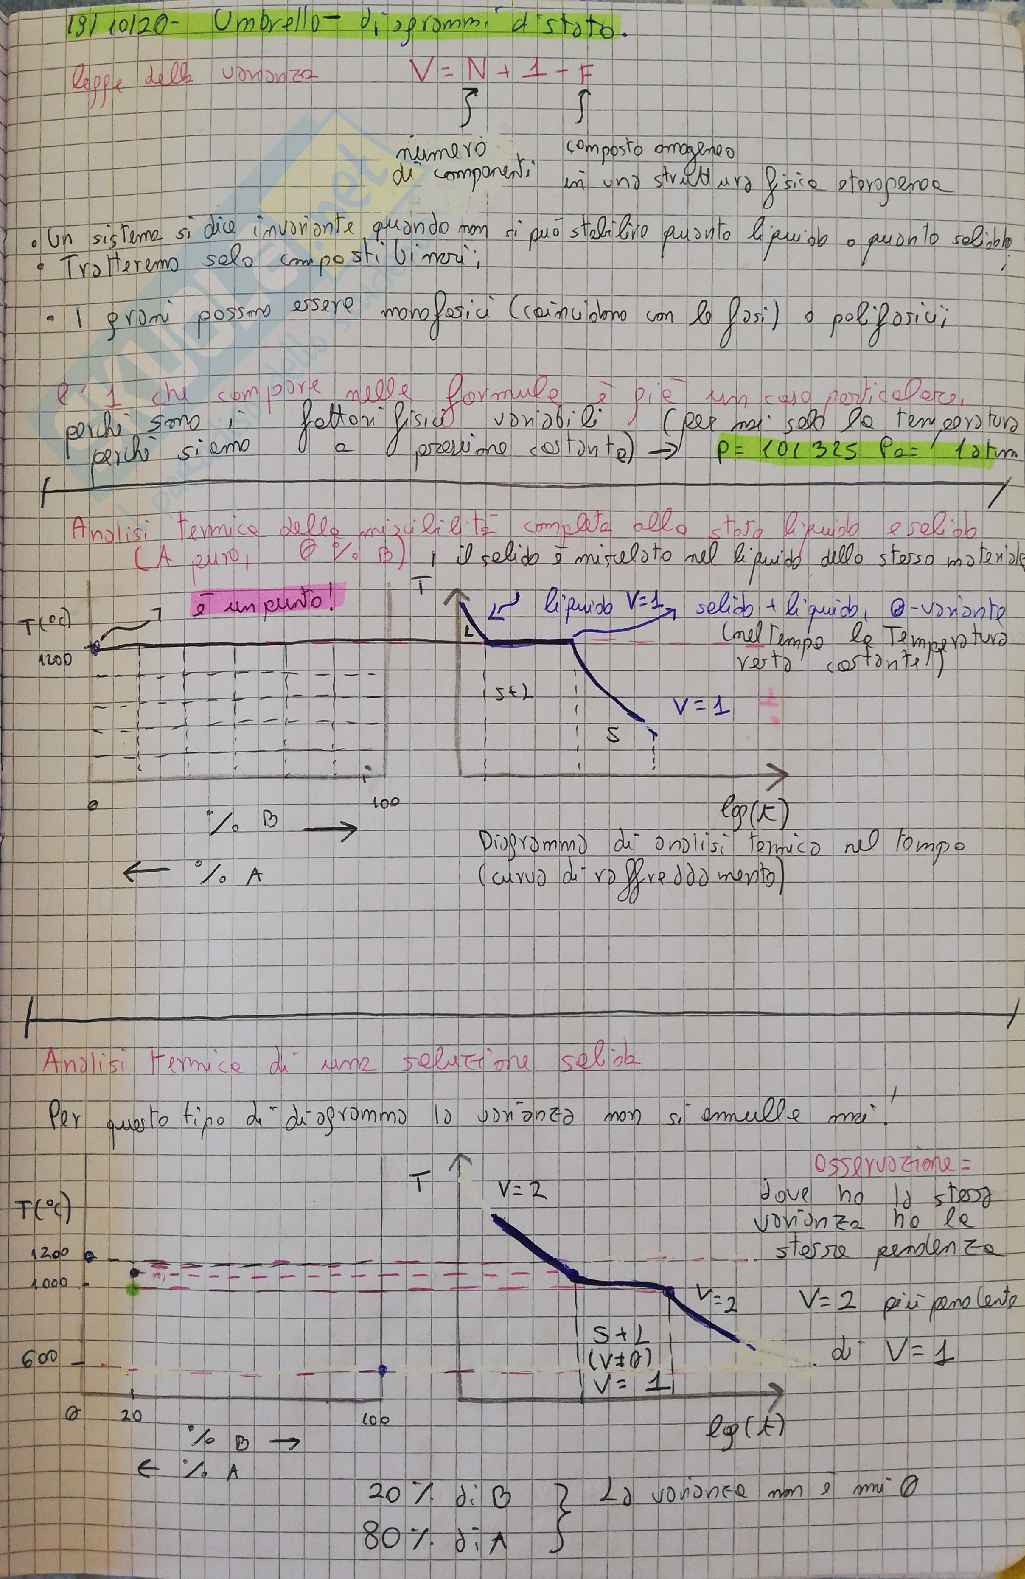 19/10/20 - Umbrello - diagrammi di stato.
legge della varianza V = N + 1 - F
numero
di componenti
composto omogeneo
in una struttura fisica eterogenea
• Un sistema si dice invariante quando non si può stabilire quanto liquido o quanto solido;
• Tratteremo solo composti binari;
• I grani possono essere monofasici (coincidono con le fasi) o polifasici;
l'1 che compare nelle formule è già un caso particolare,
perché sono i fattori fisici variabili (per noi solo la temperatura
perché siamo a pressione costante) → P = 101325 Pa = 1 atm
Analisi termica della miscibilità completa allo stato liquido e solido
(A puro, 0 % B), il solido è miscelato nel liquido dello stesso materiale
è un punto!
T(°C)
1200
0
100
% B →
← % A
T
liquido V=1
solido + liquido, 0-variante
(nel tempo la temperatura
resta costante!)
L
S+L
S
V = 1
log(t)
Diagramma di analisi termica nel tempo
(curva di raffreddamento)
Analisi termica di una soluzione solida
Per questo tipo di diagramma la varianza non si annulla mai!
T(°C)
1200
1000
600
0 20 100
% B →
← % A
T
V = 2
S+L
(V≠0)
V = 1
V=2
log(t)
Osservazione =
dove ho la stessa
varianza ho la
stessa pendenza
V = 2 più pendente
di V = 1
20% di B
80% di A
La varianza non è mai 0